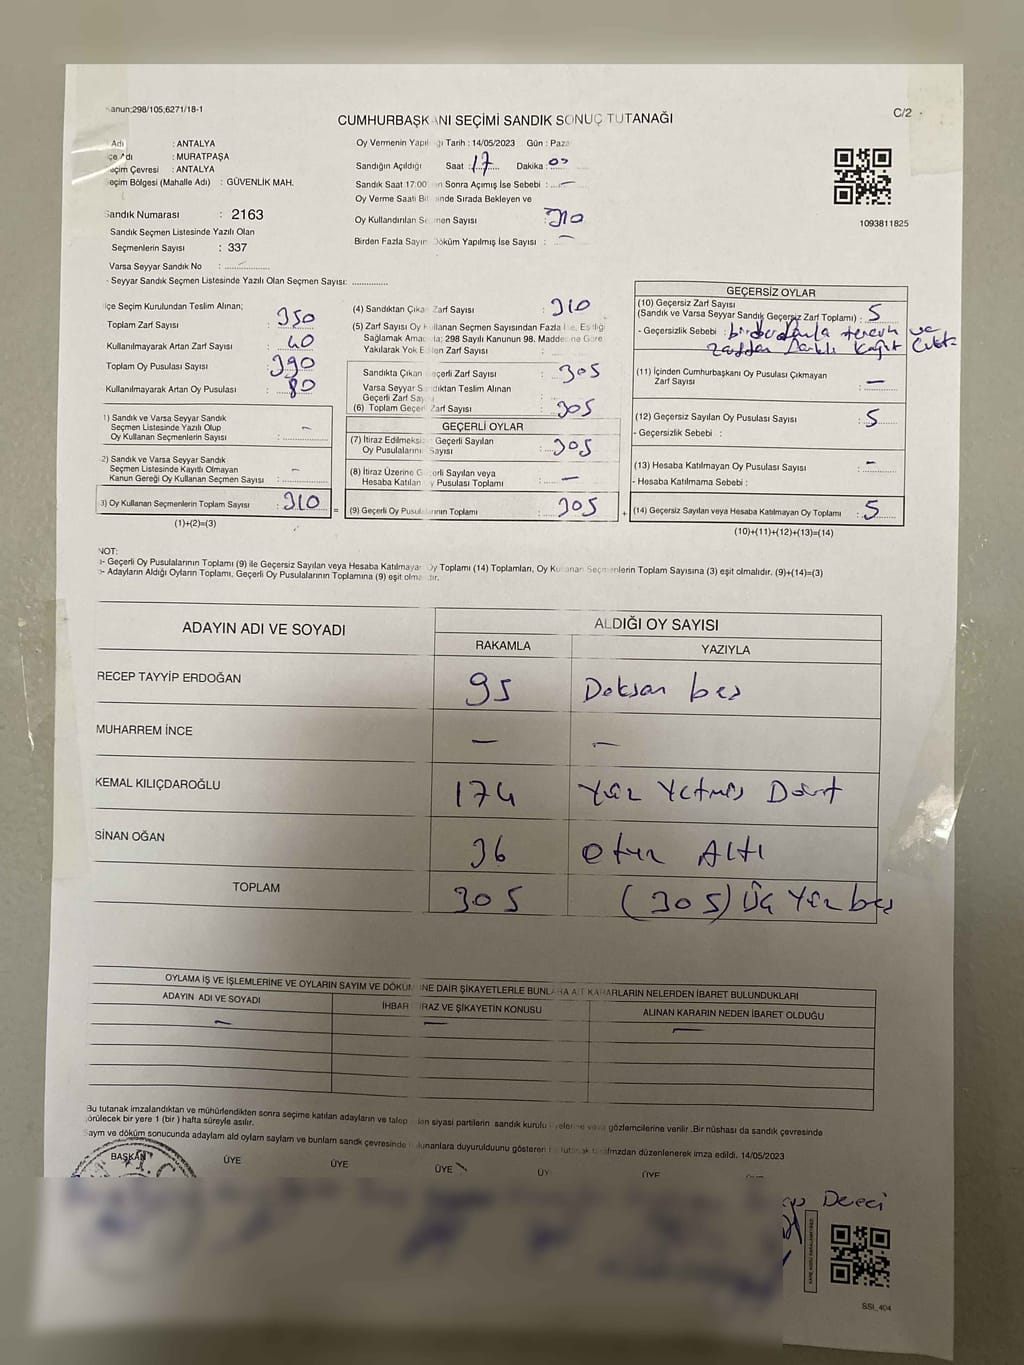 Kanun;298/105,6271/18-1
C/2
CUMHURBAŞKANI SEÇİMİ SANDIK SONUÇ TUTANAĞI
Adı : ANTALYA
İlçe Adı : MURATPAŞA
Seçim Çevresi : ANTALYA
Seçim Bölgesi (Mahalle Adı) : GÜVENLİK MAH.
Sandık Numarası : 2163
Sandık Seçmen Listesinde Yazılı Olan
Seçmenlerin Sayısı : 337
Varsa Seyyar Sandık No :
- Seyyar Sandık Seçmen Listesinde Yazılı Olan Seçmen Sayısı:
Oy Vermenin Yapıldığı Tarih : 14/05/2023 Gün : Paza
Sandığın Açıldığı Saat : 17 Dakika : 00
Sandık Saat 17:00 den Sonra Açımış İse Sebebi : —
Oy Verme Saati Bitiminde Sırada Bekleyen ve
Oy Kullandırılan Seçmen Sayısı 310
Birden Fazla Sayım Döküm Yapılmış İse Sayısı : —
1093811825
İlçe Seçim Kurulundan Teslim Alınan;
Toplam Zarf Sayısı : 350
Kullanılmayarak Artan Zarf Sayısı : 40
Toplam Oy Pusulası Sayısı : 390
Kullanılmayarak Artan Oy Pusulası : 80
1) Sandık ve Varsa Seyyar Sandık
Seçmen Listesinde Yazılı Olup
Oy Kullanan Seçmenlerin Sayısı : –
2) Sandık ve Varsa Seyyar Sandık
Seçmen Listesinde Kayıtlı Olmayan
Kanun Gereği Oy Kullanan Seçmen Sayısı : –
3) Oy Kullanan Seçmenlerin Toplam Sayısı : 310
(1)+(2)=(3)
(4) Sandıktan Çıkan Zarf Sayısı : 310
(5) Zarf Sayısı Oy Kullanan Seçmen Sayısından Fazla İse, Eşitliği
Sağlamak Amacıyla; 298 Sayılı Kanunun 98. Maddesine Göre
Yakılarak Yok Edilen Zarf Sayısı :
Sandıkta Çıkan Geçerli Zarf Sayısı : 305
Varsa Seyyar Sandıktan Teslim Alınan
Geçerli Zarf Sayısı
(6) Toplam Geçerli Zarf Sayısı : 305
GEÇERLİ OYLAR
(7) İtiraz Edilmeksizin Geçerli Sayılan
Oy Pusulalarının Sayısı : 305
(8) İtiraz Üzerine Geçerli Sayılan veya
Hesaba Katılan Oy Pusulası Toplamı : —
(9) Geçerli Oy Pusulalarının Toplamı : 305
GEÇERSİZ OYLAR
(10) Geçersiz Zarf Sayısı
(Sandık ve Varsa Seyyar Sandık Geçersiz Zarf Toplamı) : 5
- Geçersizlik Sebebi : birden fazla tercih ve
zarftan farklı kağıt
(11) İçinden Cumhurbaşkanı Oy Pusulası Çıkmayan
Zarf Sayısı : —
(12) Geçersiz Sayılan Oy Pusulası Sayısı : 5
- Geçersizlik Sebebi :
(13) Hesaba Katılmayan Oy Pusulası Sayısı : –
- Hesaba Katılmama Sebebi :
(14) Geçersiz Sayılan veya Hesaba Katılmayan Oy Toplamı : 5
(10)+(11)+(12)+(13)=(14)
NOT:
a- Geçerli Oy Pusulalarının Toplamı (9) ile Geçersiz Sayılan veya Hesaba Katılmayan Oy Toplamı (14) Toplamları, Oy Kullanan Seçmenlerin Toplam Sayısına (3) eşit olmalıdır. (9)+(14)=(3)
b- Adayların Aldığı Oyların Toplamı, Geçerli Oy Pusulalarının Toplamına (9) eşit olmalıdır.
ADAYIN ADI VE SOYADI ALDIĞI OY SAYISI
RAKAMLA YAZIYLA
RECEP TAYYİP ERDOĞAN 95 Doksan beş
MUHARREM İNCE — —
KEMAL KILIÇDAROĞLU 174 Yüz Yetmiş Dört
SİNAN OĞAN 36 Otuz Altı
TOPLAM 305 (305) Üç Yüz beş
OYLAMA İŞ VE İŞLEMLERİNE VE OYLARIN SAYIM VE DÖKÜMÜNE DAİR ŞİKAYETLERLE BUNLARA AİT KARARLARIN NELERDEN İBARET BULUNDUKLARI
ADAYIN ADI VE SOYADI İHBAR İTİRAZ VE ŞİKAYETİN KONUSU ALINAN KARARIN NEDEN İBARET OLDUĞU
— — —
Bu tutanak imzalandıktan ve mühürlendikten sonra seçime katılan adayların ve talep eden siyasi partilerin sandık kurulu üyelerine veya gözlemcilerine verilir .Bir nüshası da sandık çevresinde
görülecek bir yere 1 (bir ) hafta süreyle asılır.
Sayım ve döküm sonucunda adayların ald oylarn saylarn ve bunlarn sandk çevresinde bulunanlara duyurulduunu gösteren bu tutanak tarafmzdan düzenlenerek imza edildi. 14/05/2023
BAŞKAN ÜYE ÜYE ÜYE ÜYE ÜYE
Dereci
SSI_404